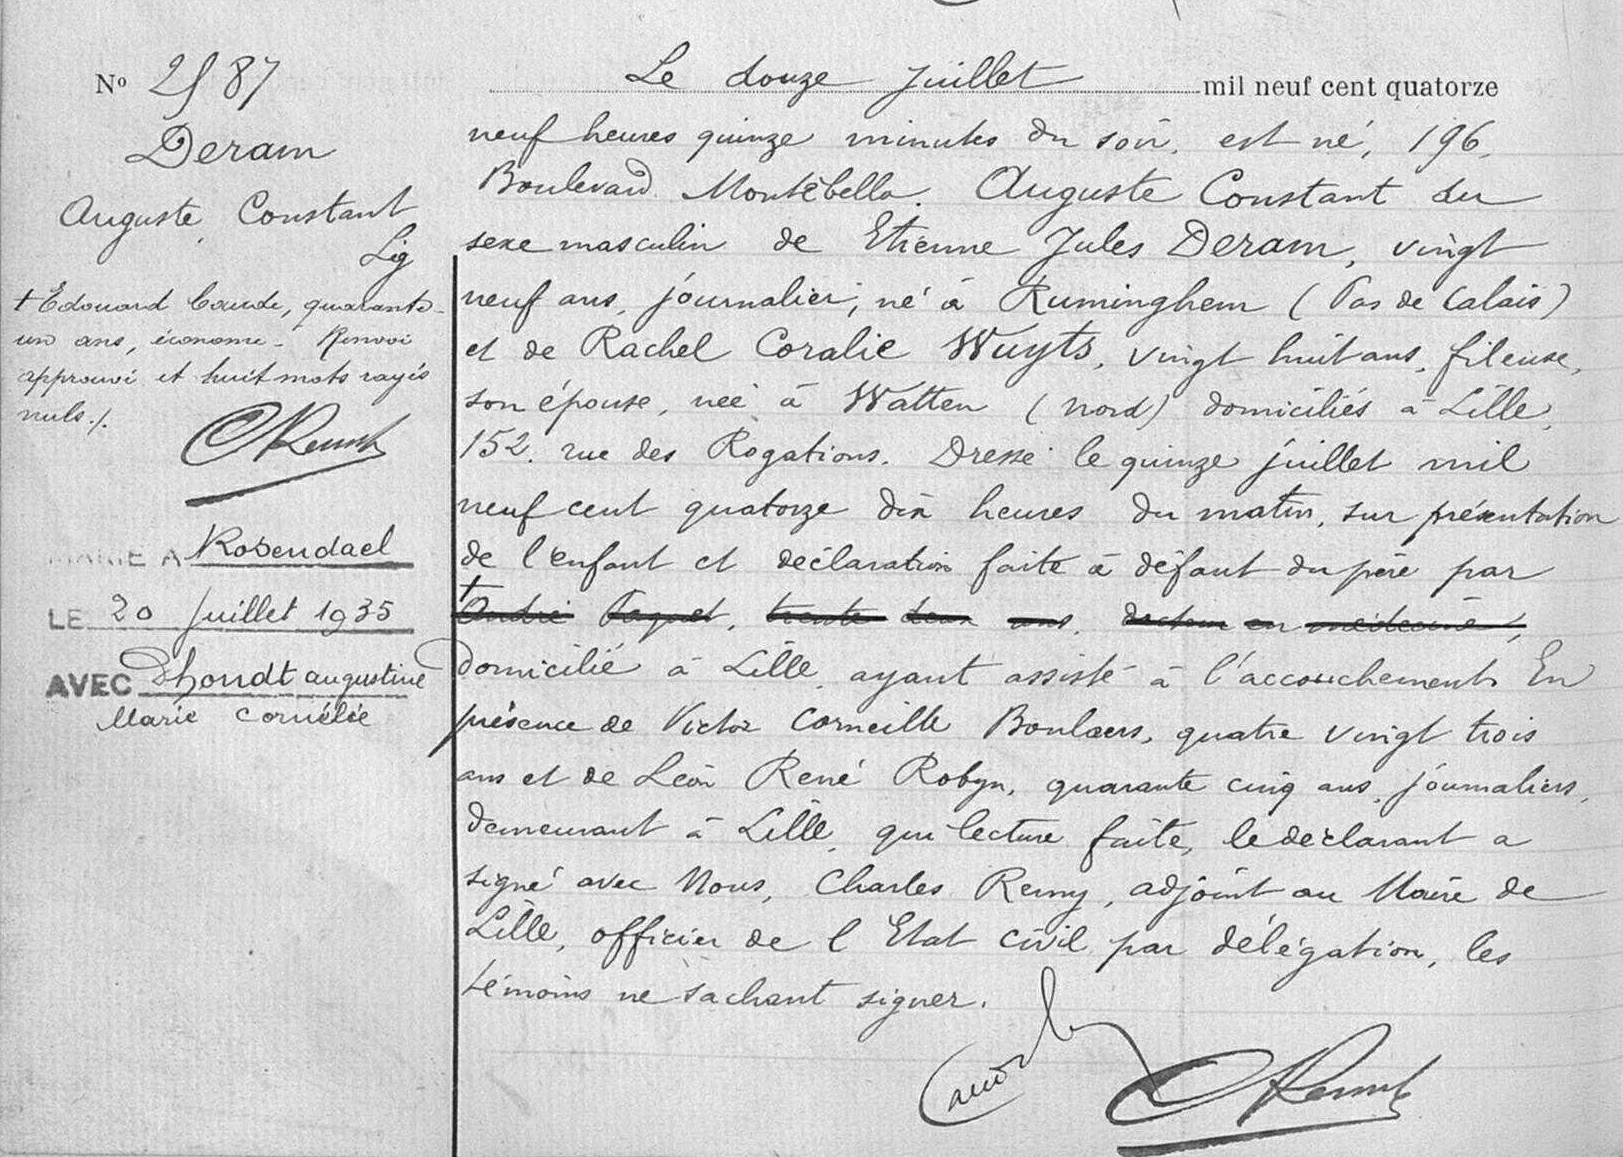 No 2587
Deram
Auguste Constant
Lig
+ Edouard Caude, quarante-
un ans, économe - Renvoi
approuvé et huit mots rayés
nuls ./.
CRemy
MARIÉ A Rosendael
LE 20 Juillet 1935
AVEC Dhondt augustine
Marie Cornélie
Le douze Juillet mil neuf cent quatorze
neuf heures quinze minutes du soir, est né, 196,
Boulevard Montébello. Auguste Constant du
sexe masculin de Etienne Jules Deram, vingt
neuf ans, journalier, né à Ruminghem (Pas de Calais)
et de Rachel Coralie Wuyts, vingt huit ans, fileuse,
son épouse, née à Watten (Nord) domiciliés à Lille,
152, rue des Rogations. Dressé le quinze juillet mil
neuf cent quatorze dix heures du matin, sur présentation
de l'enfant et déclaration faite à défaut du père par
+ André Paquet, trente deux ans, docteur en médecine,
domicilié à Lille, ayant assisté à l'accouchement. En
présence de Victor Corneille Boulaers, quatre vingt trois
ans et de Léon René Robyn, quarante cinq ans, journaliers,
demeurant à Lille, qui lecture faite, le déclarant a
signé avec Nous, Charles Remy, adjoint au Maire de
Lille, officier de l Etat civil par délégation, les
témoins ne sachant signer.
CRemy